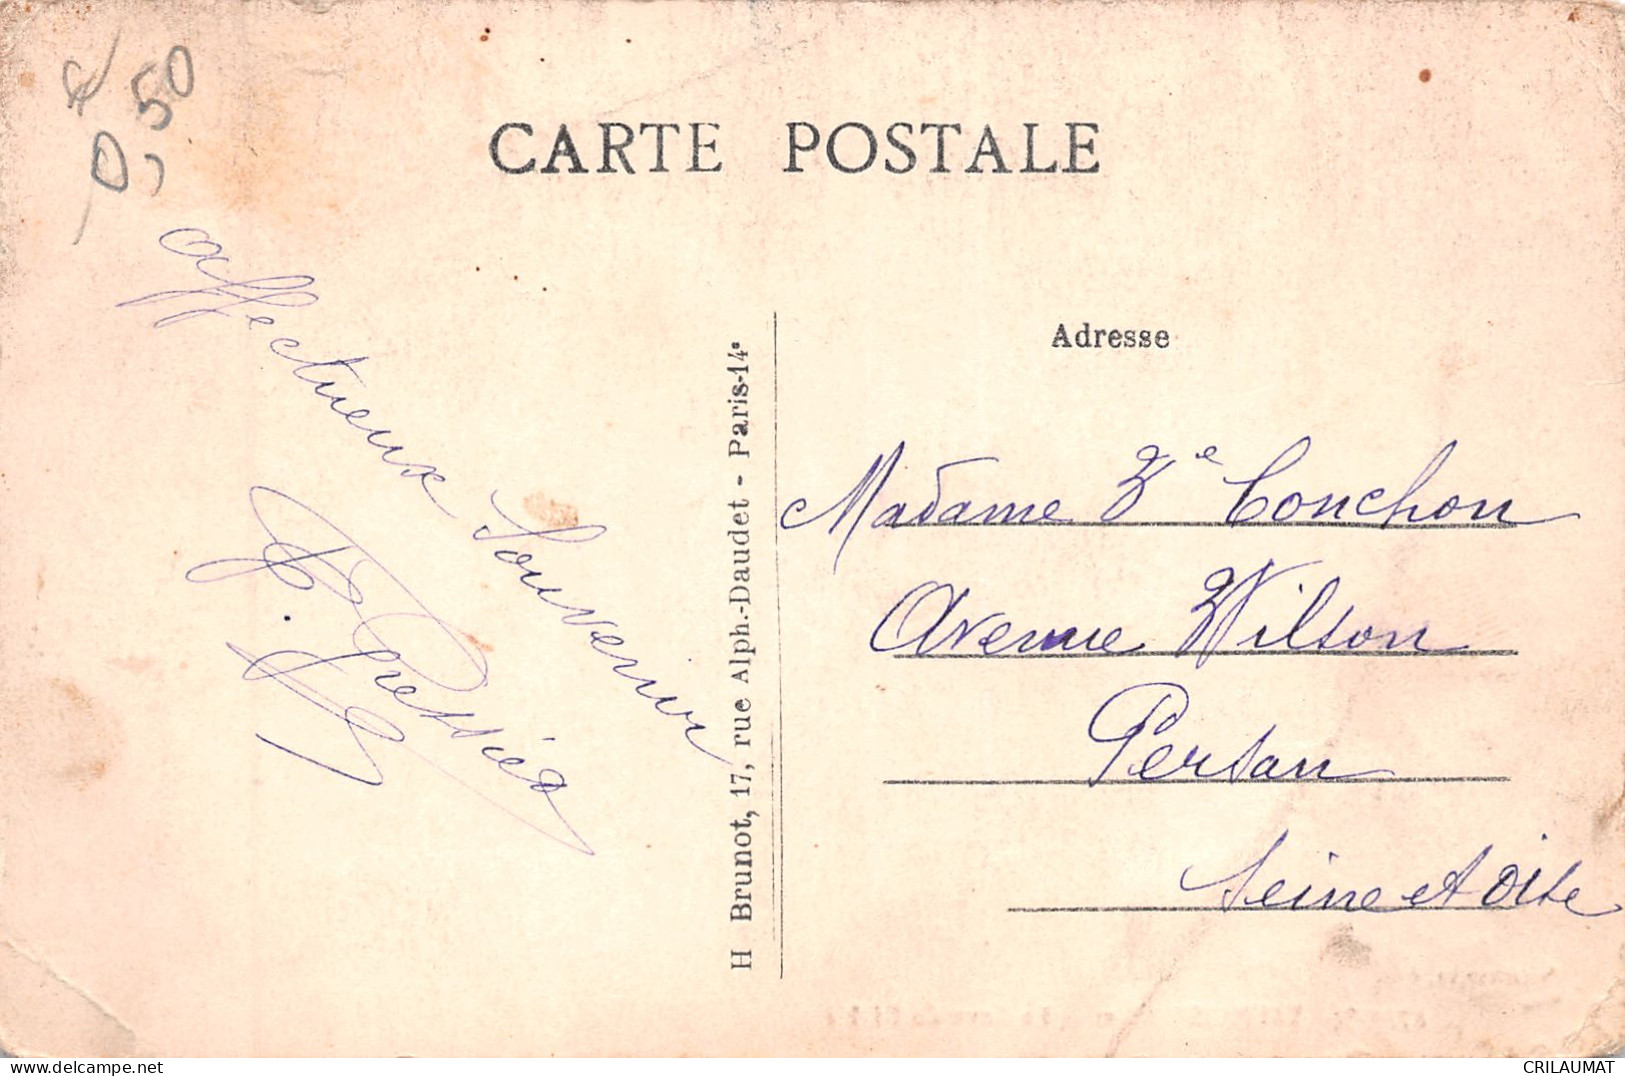 0,50
CARTE POSTALE
affectueux Souvenir
H Brunot, 17, rue Alph.-Daudet - Paris-14e
Adresse
Madame Ve Conchon
Avenue Wilson
Persan
Seine et Oise
CRILAUMAT